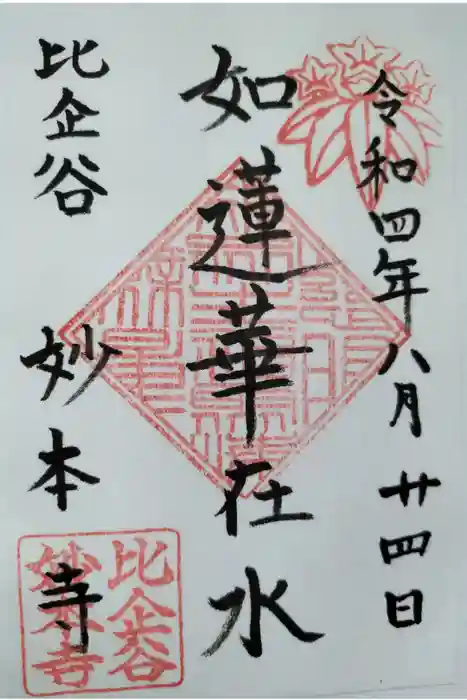 令和四年八月廿四日
如蓮華在水
比企谷
妙本寺
比企谷
妙本寺